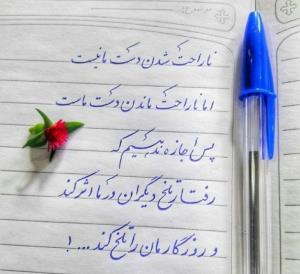 ناراحت شدن دست ما نیست
اما ناراحت ماندن دست ماست
پس اجازه ندهیم که
رفتار تلخ دیگران در ما اثر کند
و روزگارمان را تلخ کند ... !